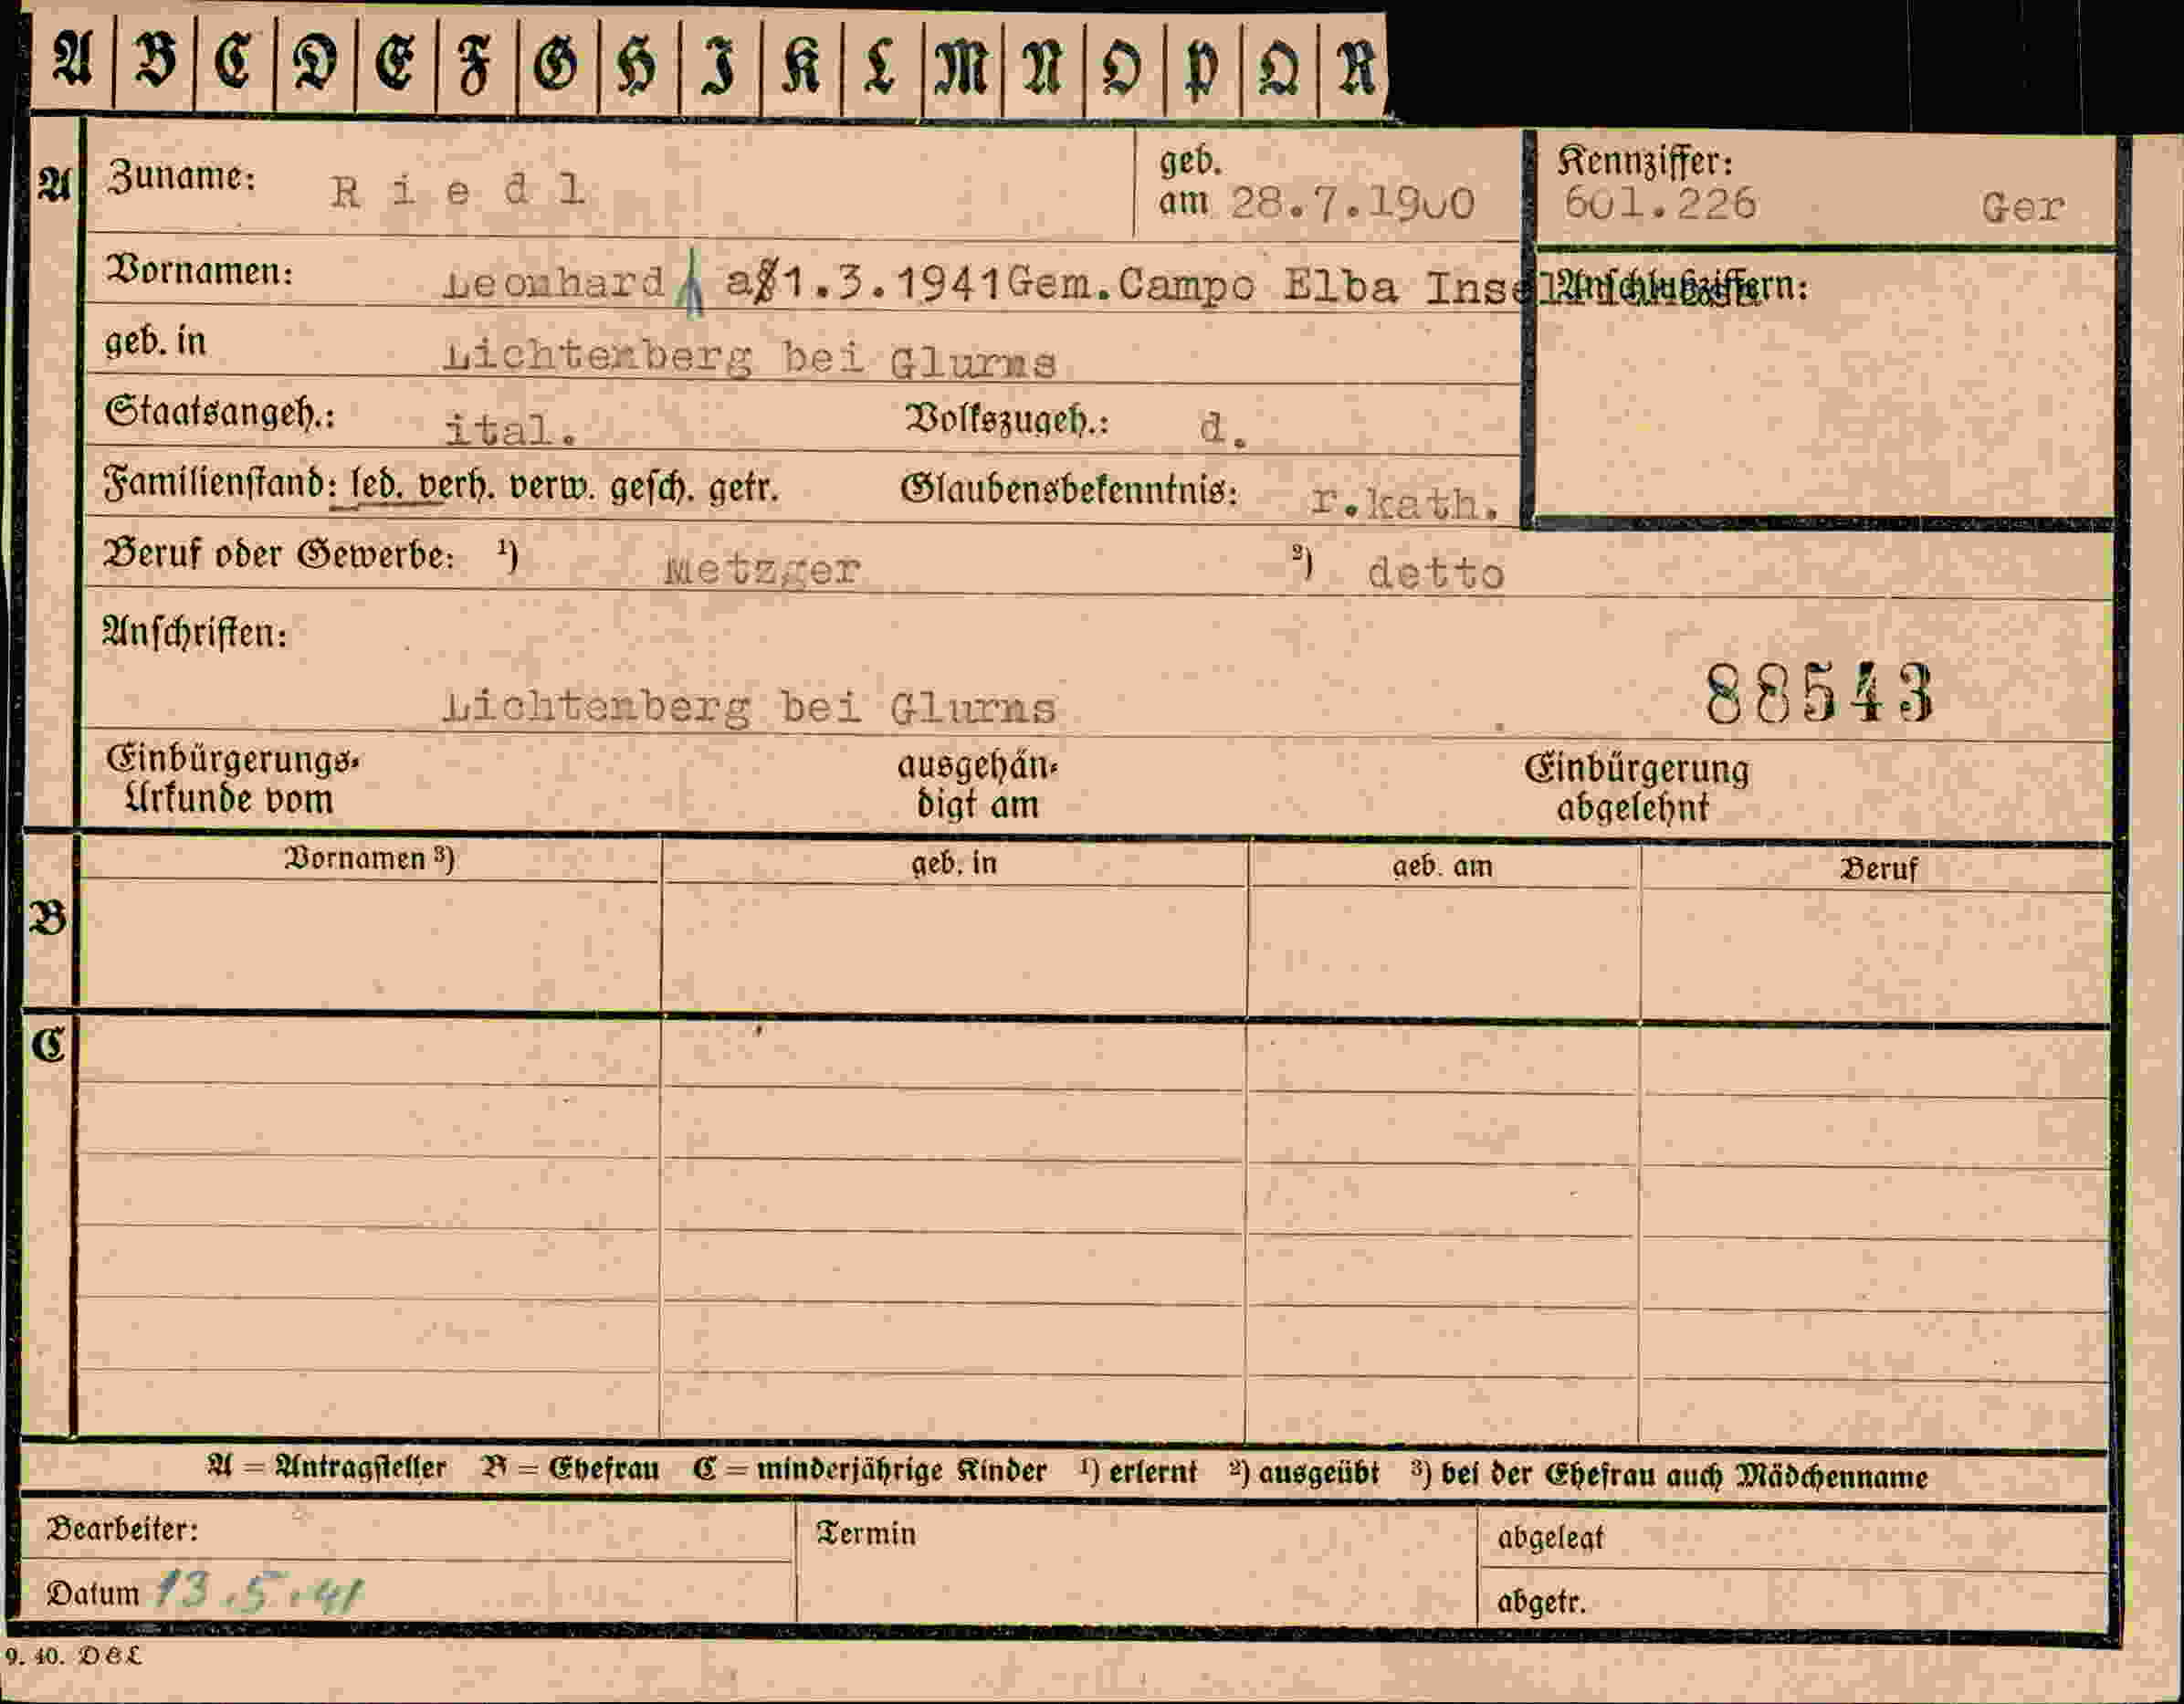 A B C D E F G H I K L M N O P Q R
A Zuname: Riedl geb. am 28.7.1900 Kennziffer: 601.226 Ger
Vornamen: Leonhard 1.3.1941Gem.Campo Elba Insel Anschlußziffern:
geb. in Lichtenberg bei Glurns
Staatsangeh.: ital. Volkszugeh.: d.
Familienstand: led. verh. verw. gesch. getr. Glaubensbekenntnis: r.kath.
Beruf oder Gewerbe: 1) Metzger 2) detto
Anschriften:
Lichtenberg bei Glurns 88543
Einbürgerungs- ausgehän- Einbürgerung
Urkunde vom digt am abgelehnt
Vornamen 3) geb. in geb. am Beruf
B
C
A = Antragsteller B = Ehefrau C = minderjährige Kinder 1) erlernt 2) ausgeübt 3) bei der Ehefrau auch Mädchenname
Bearbeiter: Termin abgelegt
Datum 13.5.41 abgetr.
9. 40. D&L